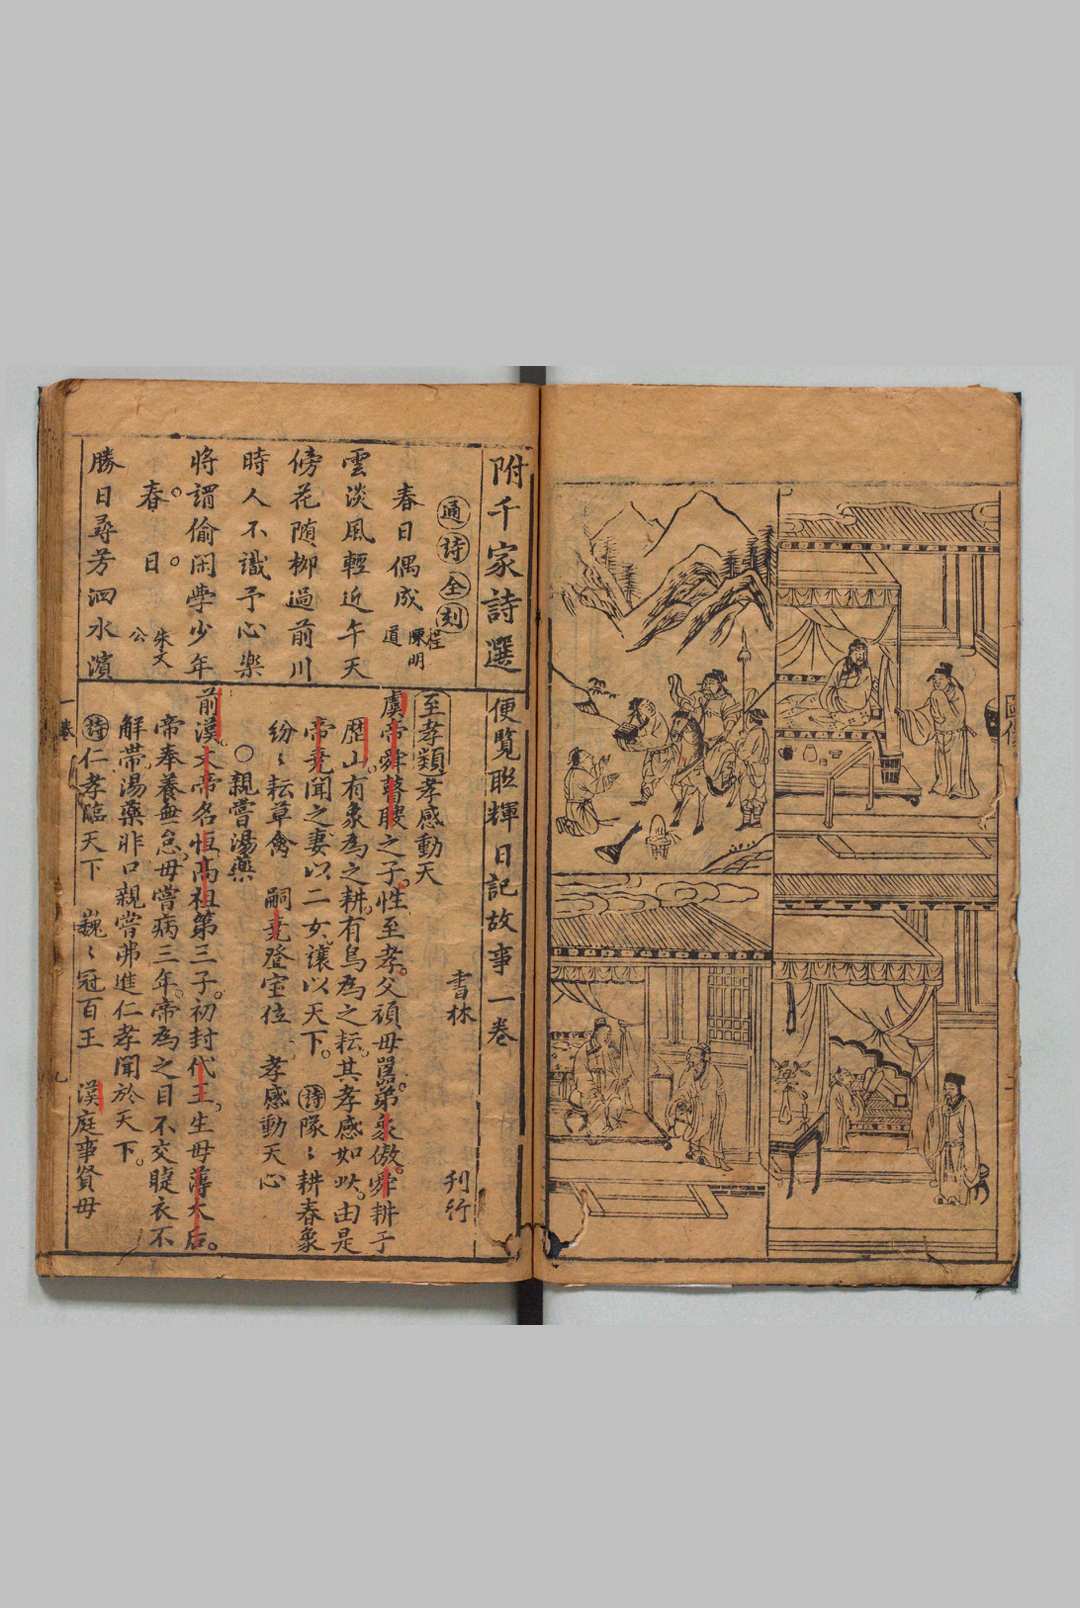 附千家詩選
通詩全刻
春日偶成
程明道
雲淡風輕近午天
傍花隨柳過前川
時人不識予心樂
將謂偷閑學少年
春日
朱文公
勝日尋芳泗水濱
便覽聯輝日記故事一卷
書林
刊行
至孝類
孝感動天
虞帝舜瞽瞍之子性至孝父頑母嚚弟象傲舜耕于
歷山有象為之耕有鳥為之耘其孝感如此由是
帝堯聞之妻以二女讓以天下詩隊〻耕春象
紛〻耘草禽 嗣堯登宝位 孝感動天心
○親嘗湯藥
前漢文帝名恒高祖第三子初封代王生母薄太后
帝奉養無怠母嘗病三年帝為之目不交睫衣不
解帶湯藥非口親嘗弗進仁孝聞於天下
詩仁孝臨天下 巍〻冠百王 漢庭事賢母
一卷